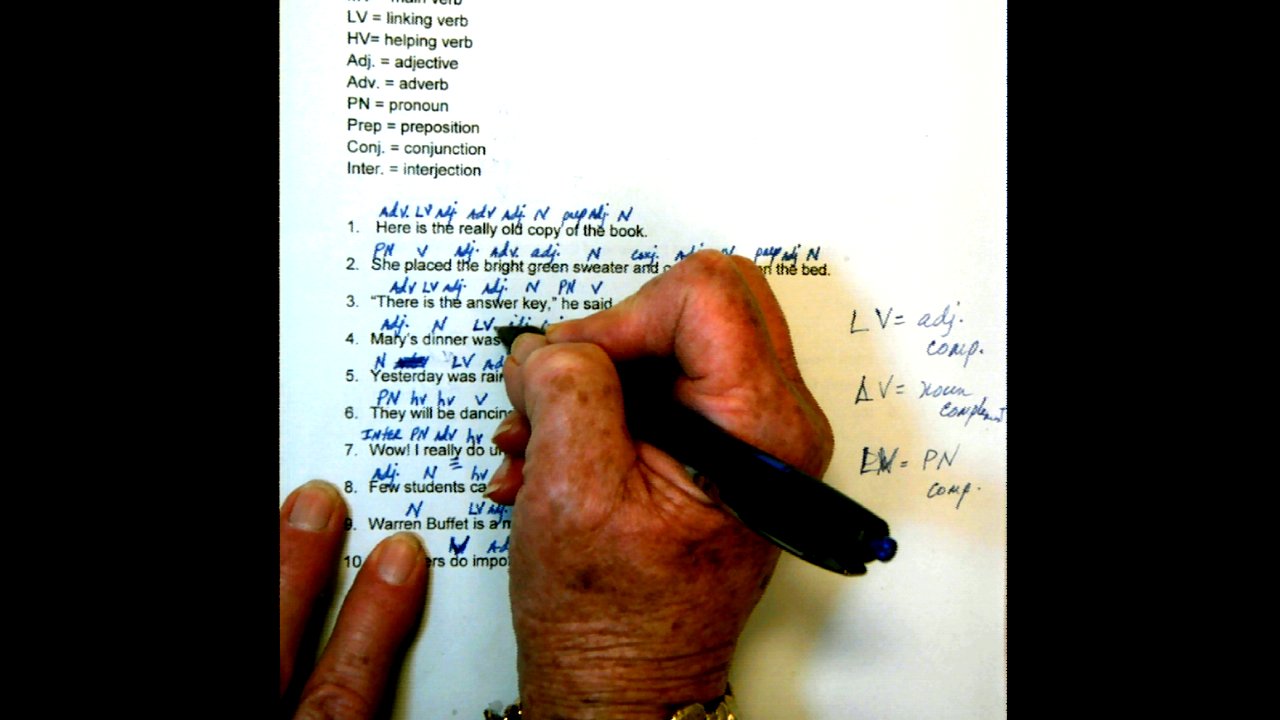 LV = linking verb
HV= helping verb
Adj. = adjective
Adv. = adverb
PN = pronoun
Prep = preposition
Conj. = conjunction
Inter. = interjection
Adv. LV Adj. Adv Adj. N prep Adj. N
1. Here is the really old copy of the book.
PN V Adj. Adv. adj. N conj. prep adj N
2. She placed the bright green sweater and the bed.
Adv LV adj. Adj. N PN V
3. “There is the answer key,” he said
Adj. N LV
4. Mary's dinner was
N LV
5. Yesterday was
PN hv hv V
6. They will be
Inter PN adv hv
7. Wow! I really do
Adj. N hv
8. Few students
N LV Adj.
9. Warren Buffet is a
10. do
LV= adj.
comp.
LV= noun
complement
LV= PN
comp.